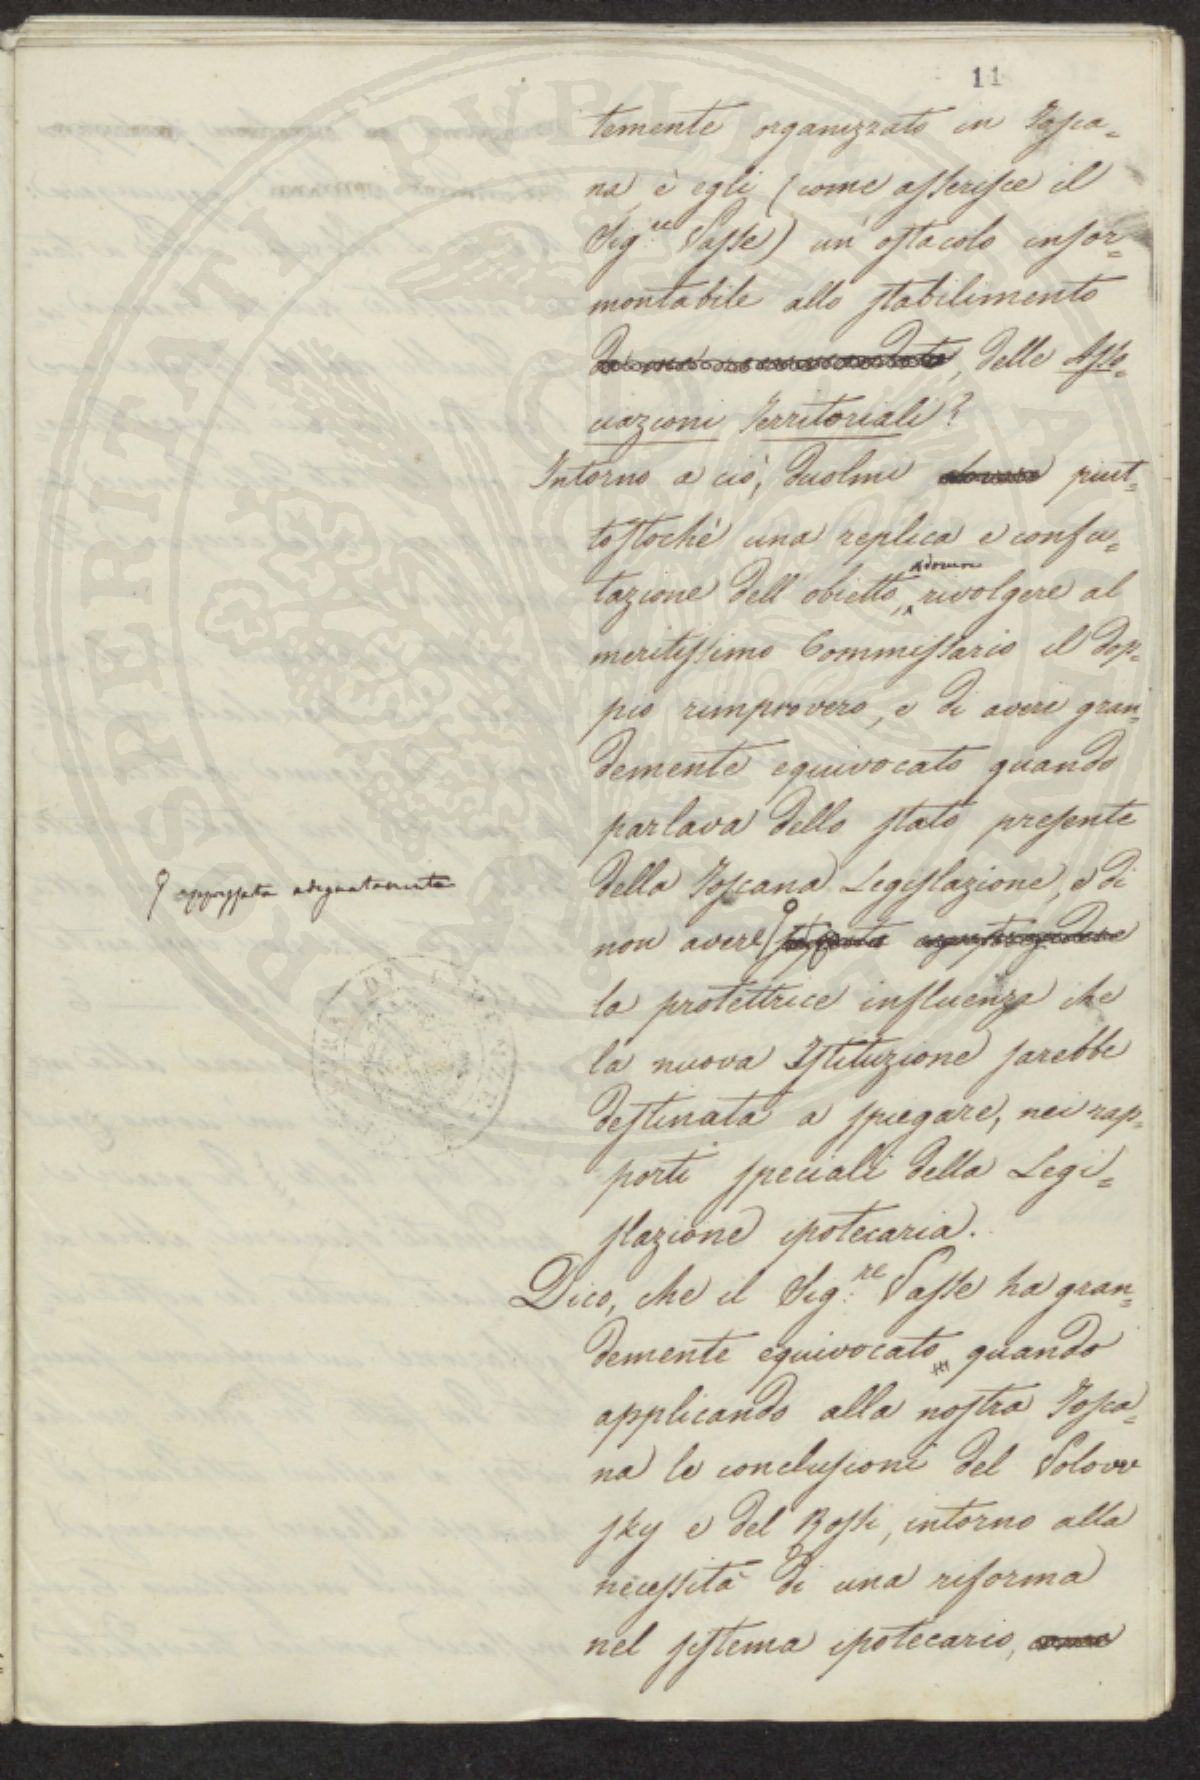 11
temente organizzato in Tosca=
na, è egli (come asserisce il
Sig.re Passe) un' ostacolo insor=
montabile allo stabilimento
delle Asso=
ciazioni Territoriali?
Intorno a ciò, duolmi piut=
tostochè una replica e confu=
tazione dell' obietto, rivolgere al
meritissimo Commissario il dop=
pio rimprovero, e di avere gran=
demente equivocato quando
parlava dello stato presente
della Toscana Legislazione, e di
adeguatamente
non avere
la protettrice influenza che
la nuova Istituzione sarebbe
destinata a spiegare, nei rap=
porti speciali della Legi=
slazione ipotecaria.
Dico, che il Sig.re Passe ha gran=
demente equivocato quando
applicando alla nostra Tosca=
na le conclusioni del Volow
sky e del Rossi, intorno alla
necessità di una riforma
nel sistema ipotecario,